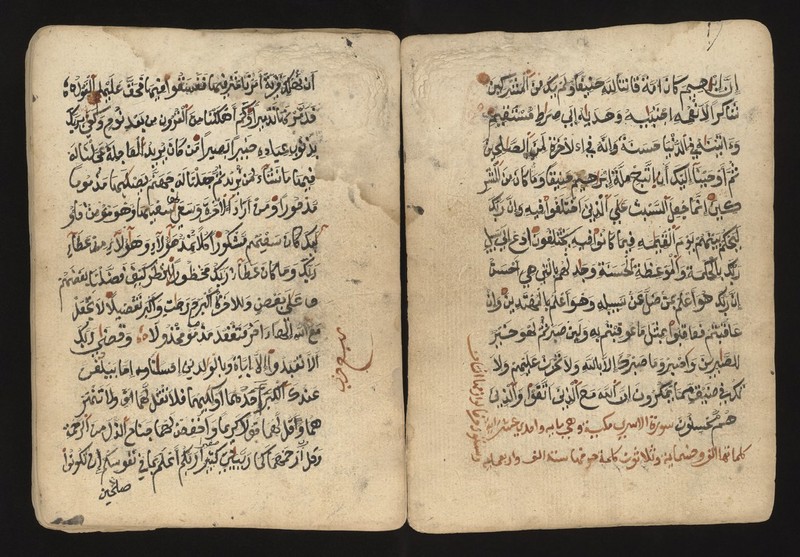 ان ابرهيم كان امة قانتا لله حنيفا ولم يك من المشركين
شاكرا لانعمه اجتبيه وهديه الى صراط مستقيم
وءاتينه في الدنيا حسنة وانه في الاخرة لمن الصلحين
ثم اوحينا اليك ان اتبع ملة ابرهيم حنيفا وما كان من المشر
كين انما جعل السبت على الذين اختلفوا فيه وان ربك
ليحكم بينهم يوم القيمة فيما كانوا فيه يختلفون ادع الى سبيل
ربك بالحكمة والموعظة الحسنة وجدلهم بالتي هي احسن
ان ربك هو اعلم بمن ضل عن سبيله وهو اعلم بالمهتدين وان
عاقبتم فعاقبوا بمثل ما عوقبتم به ولين صبرتم لهو خير
للصبرين واصبر وما صبرك الا بالله ولا تحزن عليهم ولا
تك في ضيق مما يمكرون ان الله مع الذين اتقوا والذين
هم محسنون سورة الاسرى مكية وهي ماية واحدى عشر
كلماتها الف وخمسماية وثلاثون كلمة حروفها ستة الاف واربعماية
ان نهلك قرية امرنا مترفيها ففسقوا فيها فحق عليها القول
فدمرنها تدميرا وكم اهلكنا من القرون من بعد نوح وكفى بربك
بذنوب عباده خبيرا بصيرا من كان يريد العاجلة عجلنا له
فيها ما نشاء لمن نريد ثم جعلنا له جهنم يصليها مذموما
مدحورا ومن اراد الاخرة وسعى لها سعيها وهو مومن فاو
ليك كان سعيهم مشكورا كلا نمد هولاء وهولاء من عطاء
ربك وما كان عطاء ربك محظورا انظر كيف فضلنا بعضهم
على بعض وللاخرة اكبر درجت واكبر تفضيلا لا تجعل
مع الله الها اخر فتقعد مذموما مخذولا وقضى ربك
الا تعبدوا الا اياه وبالولدين احسانا اما يبلغن
عندك الكبر احدهما او كلاهما فلا تقل لهما اف ولا تنهر
هما وقل لهما قولا كريما واخفض لهما جناح الذل من الرحمة
وقل رب ارحمهما كما ربيني صغيرا ربكم اعلم بما في نفوسكم ان تكونوا
صالحين